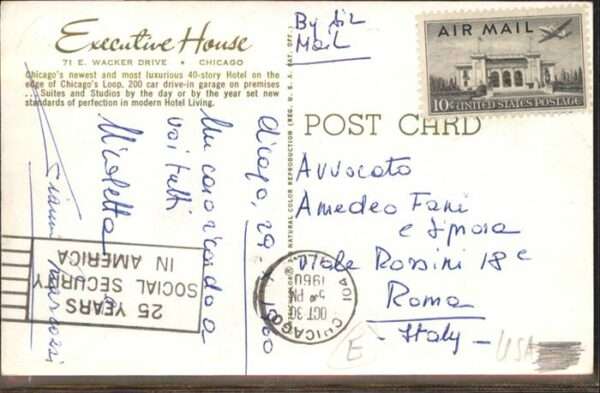 Executive House
71 E. WACKER DRIVE • CHICAGO
Chicago's newest and most luxurious 40-story Hotel on the
edge of Chicago's Loop, 200 car drive-in garage on premises
...Suites and Studios by the day or by the year set new
standards of perfection in modern Hotel Living.
By Air
Mail
AIR MAIL
10¢ UNITED STATES POSTAGE
POST CARD
NATURAL COLOR REPRODUCTION (REG. U.S.A. PAT. OFF.)
Un caro ricordo a
voi tutti
Nicoletta
Gianni
Avvocato
Amedeo Fani
e Sposa
Viale Rossini 18
Roma
Italy
CHICAGO
OCT 30
5 PM
1960
25 YEARS
SOCIAL SECURITY
IN AMERICA
E
USA